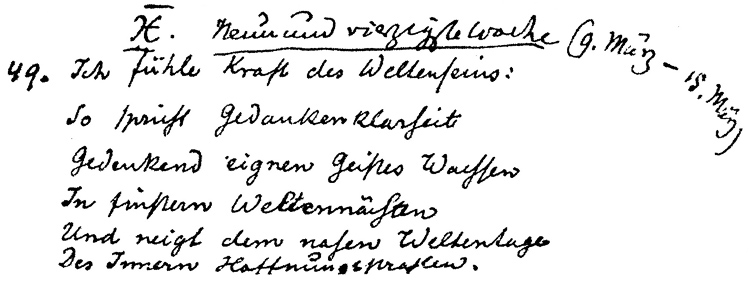 H. Neunundvierzigste Woche (9. März – 15. März)
49. Ich fühle Kraft des Weltenseins:
So spricht Gedankenklarheit
Gedenkend eignen Geistes Wachsen
In finstern Weltennächten
Und neigt dem nahen Weltentage
Des Innern Hoffnungsstrahlen.